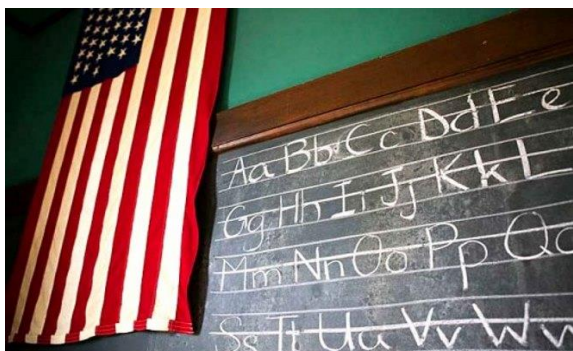 Aa Bb Cc Dd Ee
Gg Hh Ii Jj Kk L
Mm Nn Oo Pp Qq
Ss Tt Uu Vv Ww